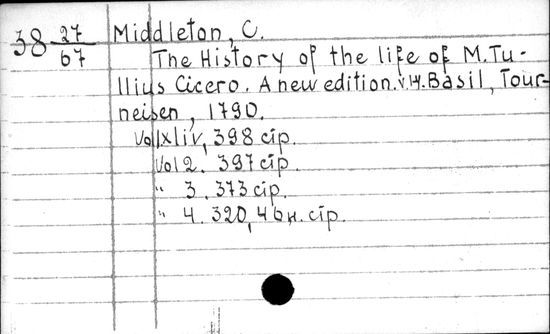 38 27/67 Middleton, C.
The History of the life of M. Tu-
llius Cicero. A new edition. v.1-4. Basil, Tour-
neisen, 1790.
Vol 1 xliv, 398 cīp.
Vol 2. 397 cīp.
" 3. 373 cīp.
" 4. 320, 46 н. cīp.